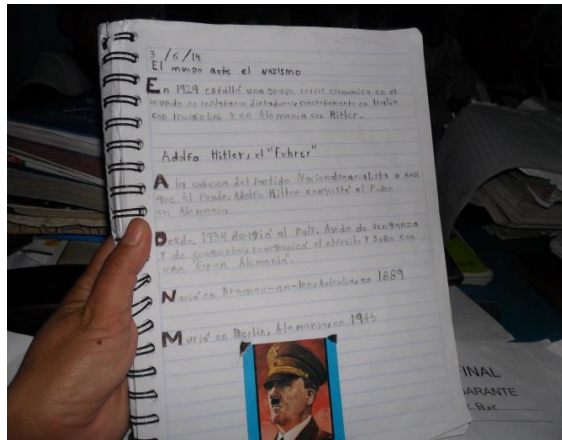 3/6/14
El mundo ante el Nazismo
En 1929 estalló una grave crisis economica en el
mundo se instalaron dictadores concretamente en Italia
con Mussolini y en Alemania con Hitler.
Adolfo Hitler, el "Fuhrer"
A la cabeza del Partido Nacionalsocialista o nazi
que el Fundo, Adolfo Hitler conquistó el Poder
en Alemania
Desde 1934 dirigió al País. Avido de venganza
y de conquistas, reorganizó el ejército y soño con
una "Gran Alemania".
Nació en Braunau-an-Inn, Austria, en 1889
Murió en Berlin, Alemania, en 1945
FINAL